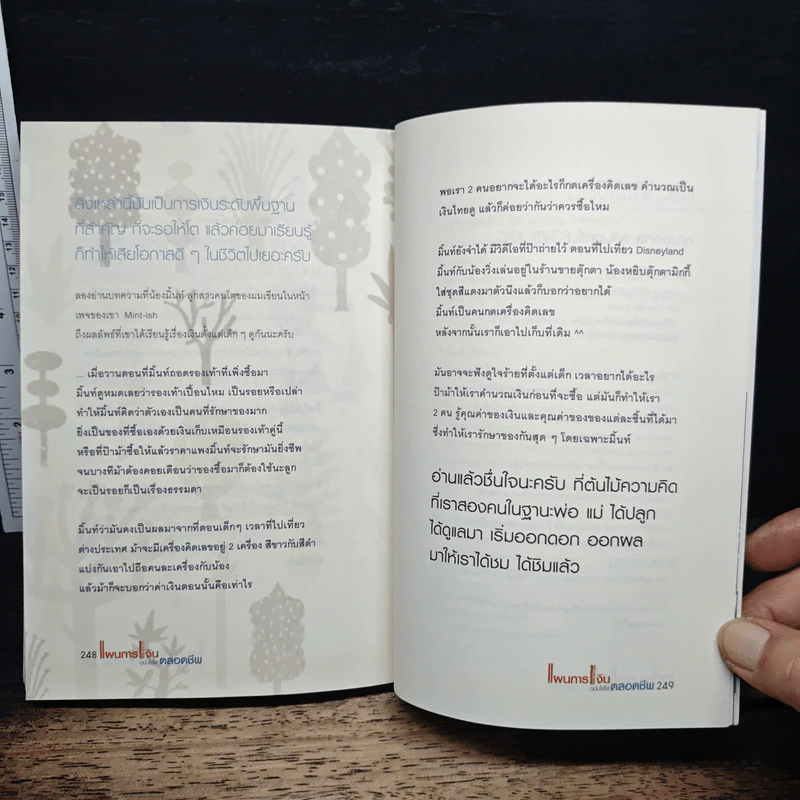 สิ่งเหล่านี้มันเป็นการเงินระดับพื้นฐาน
ที่สำคัญ ที่จะรอให้โต แล้วค่อยมาเรียนรู้
ก็ทำให้เสียโอกาสดี ๆ ในชีวิตไปเยอะครับ
ลองอ่านบทความที่น้องมิ้นท์ ลูกสาวคนโตของผมเขียนในหน้า
เพจของเขา Mint-ish
ถึงผลลัพธ์ที่เขาได้เรียนรู้เรื่องเงินตั้งแต่เด็ก ๆ ดูกันนะครับ
... เมื่อวานตอนที่มิ้นท์ถอดรองเท้าที่เพิ่งซื้อมา
มิ้นท์ดูหมดเลยว่ารองเท้าเปื้อนไหม เป็นรอยหรือเปล่า
ทำให้มิ้นท์คิดว่าตัวเองเป็นคนที่รักษาของมาก
ยิ่งเป็นของที่ซื้อเองด้วยเงินเก็บเหมือนรองเท้าคู่นี้
หรือที่ป๊าม้าซื้อให้แล้วราคาแพงมิ้นท์จะรักษามันยิ่งชีพ
จนบางทีม้าต้องคอยเตือนว่าของซื้อมาก็ต้องใช้นะลูก
จะเป็นรอยก็เป็นเรื่องธรรมดา
มิ้นท์ว่ามันคงเป็นผลมาจากที่ตอนเด็กๆ เวลาที่ไปเที่ยว
ต่างประเทศ ม้าจะมีเครื่องคิดเลขอยู่ 2 เครื่อง สีขาวกับสีดำ
แบ่งกันเอาไปถือคนละเครื่องกับน้อง
แล้วม้าก็จะบอกว่าค่าเงินตอนนั้นคือเท่าไร
248 แผนการเงิน
ตลอดชีพ
พอเรา 2 คนอยากจะได้อะไรก็กดเครื่องคิดเลข คำนวณเป็น
เงินไทยดู แล้วก็ค่อยว่ากันว่าควรซื้อไหม
มิ้นท์ยังจำได้ มีวิดีโอที่ป๊าถ่ายไว้ ตอนที่ไปเที่ยว Disneyland
มิ้นท์กับน้องวิ่งเล่นอยู่ในร้านขายตุ๊กตา น้องหยิบตุ๊กตามิกกี้
ใส่ชุดสีแดงมาตัวนึงแล้วก็บอกว่าอยากได้
มิ้นท์เป็นคนกดเครื่องคิดเลข
หลังจากนั้นเราก็เอาไปเก็บที่เดิม ^^
มันอาจจะฟังดูใจร้ายที่ตั้งแต่เด็ก เวลาอยากได้อะไร
ป๊าม้าให้เราคำนวณเงินก่อนที่จะซื้อ แต่มันก็ทำให้เรา
2 คน รู้คุณค่าของเงินและคุณค่าของของแต่ละชิ้นที่ได้มา
ซึ่งทำให้เรารักษาของกันสุด ๆ โดยเฉพาะมิ้นท์
อ่านแล้วชื่นใจนะครับ ที่ต้นไม้ความคิด
ที่เราสองคนในฐานะพ่อ แม่ ได้ปลูก
ได้ดูแลมา เริ่มออกดอก ออกผล
มาให้เราได้ชม ได้ชิมแล้ว
แผนการเงิน
ตลอดชีพ 249